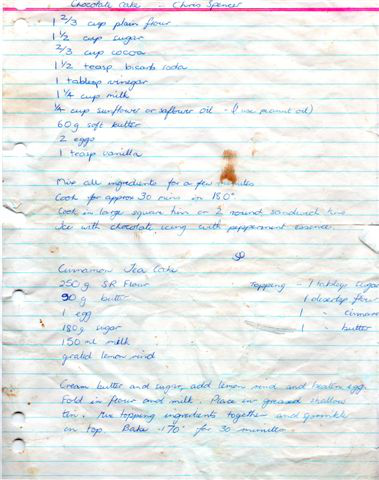 Chocolate Cake - Chris Spencer
1 2/3 cup plain flour
1 1/2 cup sugar
2/3 cup cocoa
1 1/2 teasp bicarb soda
1 tablesp vinegar
1 1/4 cup milk
1/4 cup sunflower or saflower oil - (I use peanut oil)
60g soft butter
2 eggs
1 teasp vanilla
Mix all ingredients for a few minutes
Cook for approx 30 mins in 180°
Cook in large square tin or 2 round sandwich tins
Ice with chocolate icing with peppermint essence.
Cinnamon Tea Cake
250g SR Flour Topping - 1 tablesp sugar
90g butter 1 dessertsp flour
1 egg 1 " cinnamon
180g sugar 1 " butter
150 ml milk
grated lemon rind
Cream butter and sugar, add lemon rind and beaten egg.
Fold in flour and milk. Place in greased shallow
tin. Mix topping ingredients together and sprinkle
on top. Bake 170° for 30 minutes.